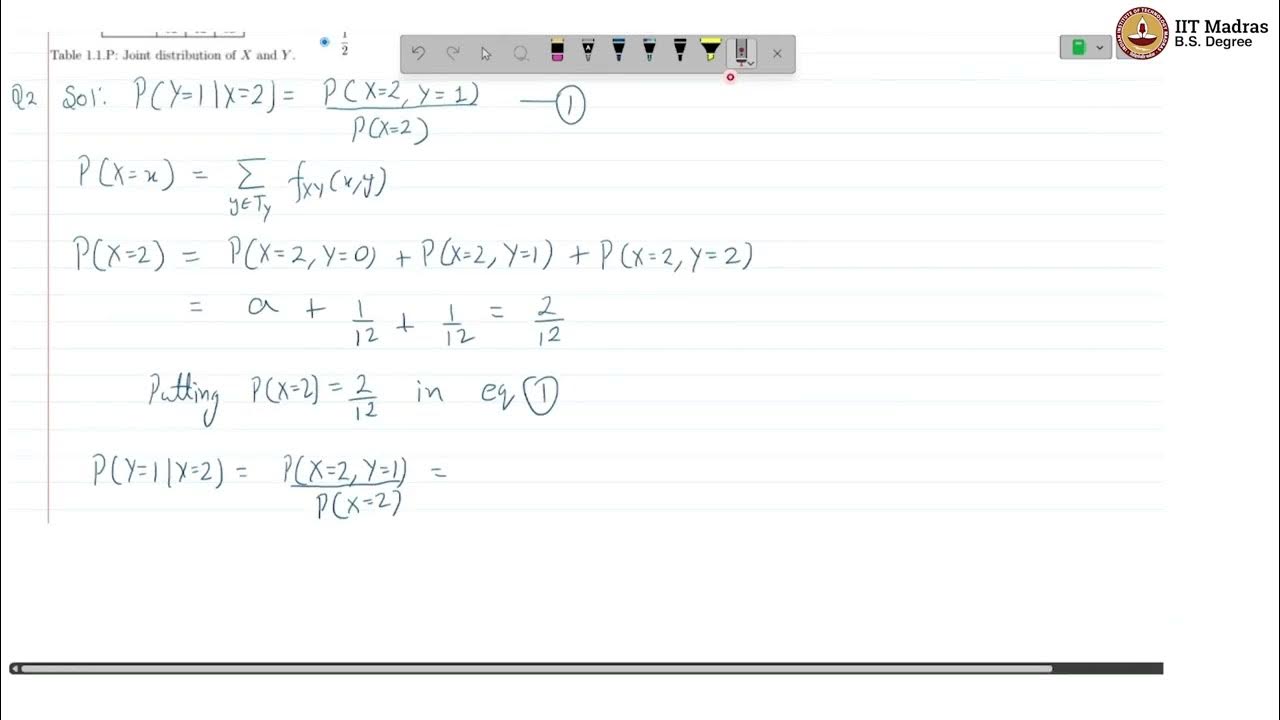 IIT Madras
B.S. Degree
Table 1.1.P: Joint distribution of X and Y.
1/2
Q2 Sol: P(Y=1|X=2) = P(X=2, Y=1) / P(X=2) — ①
P(X=x) = Σ_{y∈T_y} f_{XY}(x,y)
P(X=2) = P(X=2, Y=0) + P(X=2, Y=1) + P(X=2, Y=2)
= a + 1/12 + 1/12 = 2/12
Putting P(X=2) = 2/12 in eq ①
P(Y=1|X=2) = P(X=2, Y=1) / P(X=2) =